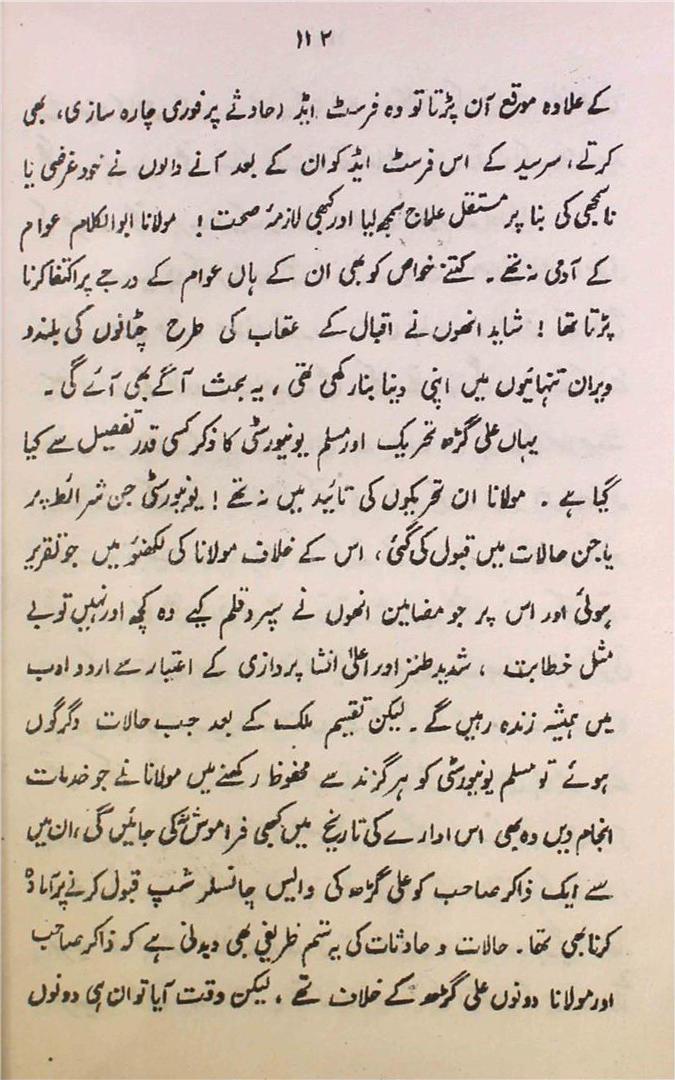 ۱۱۲
کے علاوہ موقع آن پڑتا تو وہ فرسٹ ایڈ (حادثے پر فوری چارہ سازی، بھی
کرتے، سرسید کے اس فرسٹ ایڈ کو ان کے بعد آنے والوں نے خود غرضی یا
ناسمجھی کی بنا پر مستقل علاج سمجھ لیا اور کبھی لازمۂ صحت! مولانا ابوالکلام عوام
کے آدمی نہ تھے۔ کتنے خواص کو بھی ان کے ہاں عوام کے درجے پر اکتفا کرنا
پڑتا تھا! شاید انھوں نے اقبال کے عقاب کی طرح چٹانوں کی بلند و
ویران تنہائیوں میں اپنی دینا بنا رکھی تھی، یہ بحث آگے بھی آئے گی۔
یہاں علی گڑھ تحریک اور مسلم یونیورسٹی کا ذکر کسی قدر تفصیل سے کیا
گیا ہے۔ مولانا ان تحریکوں کی تائید میں نہ تھے! یونیورسٹی جن شرائط پر
یا جن حالات میں قبول کی گئی، اس کے خلاف مولانا کی لکھنؤ میں جو تقریر
ہوئی اور اس پر جو مضامین انھوں نے سپرد قلم کیے وہ کچھ اور نہیں تو بے
مثل خطابت، شدید طنز اور اعلیٰ انشا پردازی کے اعتبار سے اردو ادب
میں ہمیشہ زندہ رہیں گے۔ لیکن تقسیم ملک کے بعد جب حالات دگرگوں
ہوئے تو مسلم یونیورسٹی کو ہر گزند سے محفوظ رکھنے میں مولانا نے جو خدمات
انجام دیں وہ بھی اس ادارے کی تاریخ میں کبھی فراموش کی جائیں گی، ان میں
سے ایک ذاکر صاحب کو علی گڑھ کی وایس چانسلر شپ قبول کرنے پر آمادہ
کرنا بھی تھا۔ حالات و حادثات کی یہ ستم ظریفی بھی دیدنی ہے کہ ذاکر صاحب
اور مولانا دونوں علی گڑھ کے خلاف تھے، لیکن وقت آیا تو ان ہی دونوں